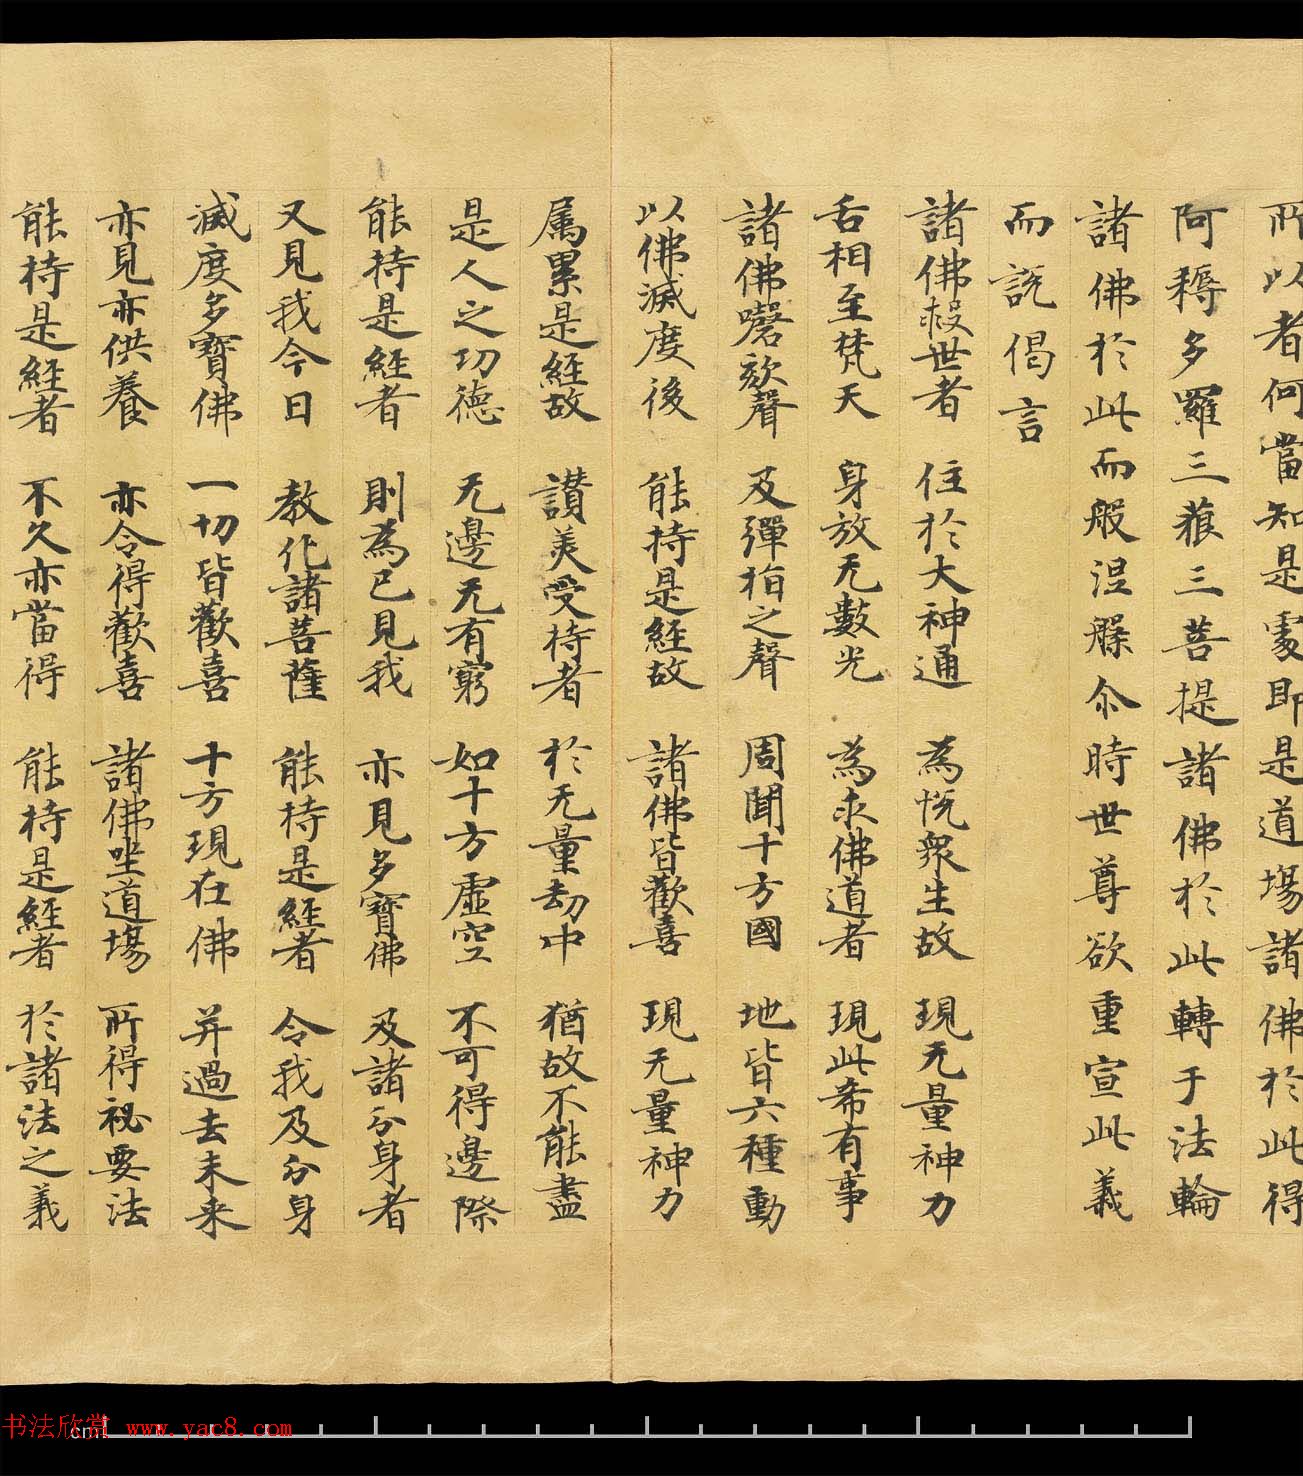 所以者何當知是處即是道場諸佛於此得
阿耨多羅三藐三菩提諸佛於此轉于法輪
諸佛於此而般涅槃尒時世尊欲重宣此義
而說偈言
諸佛救世者 住於大神通 為恱衆生故 現无量神力
舌相至梵天 身放无數光 為求佛道者 現此希有事
諸佛謦欬聲 及彈指之聲 周聞十方國 地皆六種動
以佛滅度後 能持是經故 諸佛皆歡喜 現无量神力
属累是經故 讃美受持者 於无量劫中 猶故不能盡
是人之功德 无邊无有窮 如十方虛空 不可得邊際
能持是經者 則為已見我 亦見多寶佛 及諸分身者
又見我今日 教化諸菩薩 能持是經者 令我及分身
滅度多寶佛 一切皆歡喜 十方現在佛 并過去未来
亦見亦供養 亦令得歡喜 諸佛坐道場 所得祕要法
能持是經者 不久亦當得 能持是經者 於諸法之義
书法欣赏 www.yac8.com
cm